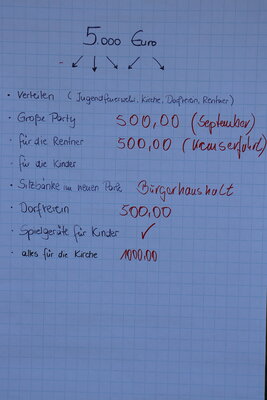 5.000 Euro
- Verteilen (Jugendfeuerwehr, Kirche, Dorfverein, Rentner)
- Große Party 500,00 (September)
- für die Rentner 500,00
- für die Kinder
- Sitzbänke im neuen Park Bürgerhaushalt
- Dorfverein 500,00
- Spielgeräte für Kinder ✓
- alles für die Kirche 1000,00